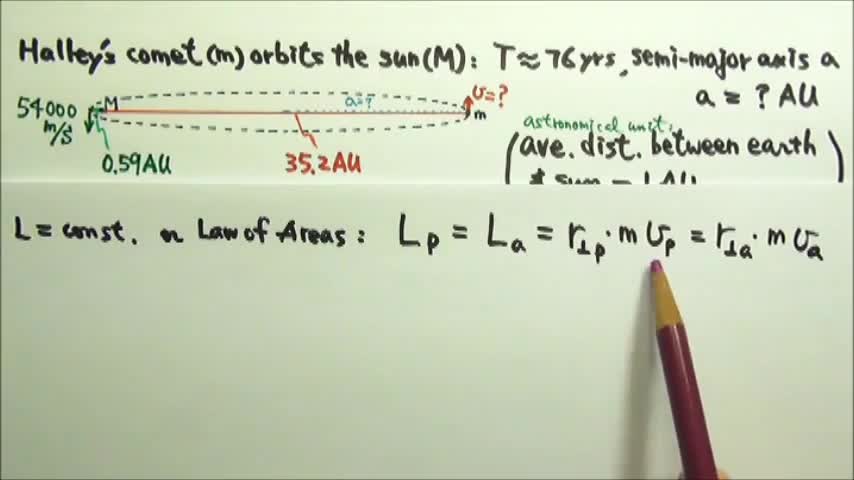 Halley's comet (m) orbits the sun (M): T ≈ 76 yrs, semi-major axis a
a = ? AU
54000 m/s
M
a=?
v=?
m
0.59AU
35.2AU
astronomical unit:
(ave. dist. between earth
& sun = 1 AU)
L = const. or Law of Areas: L_p = L_a = r_⊥p · m v_p = r_⊥a · m v_a